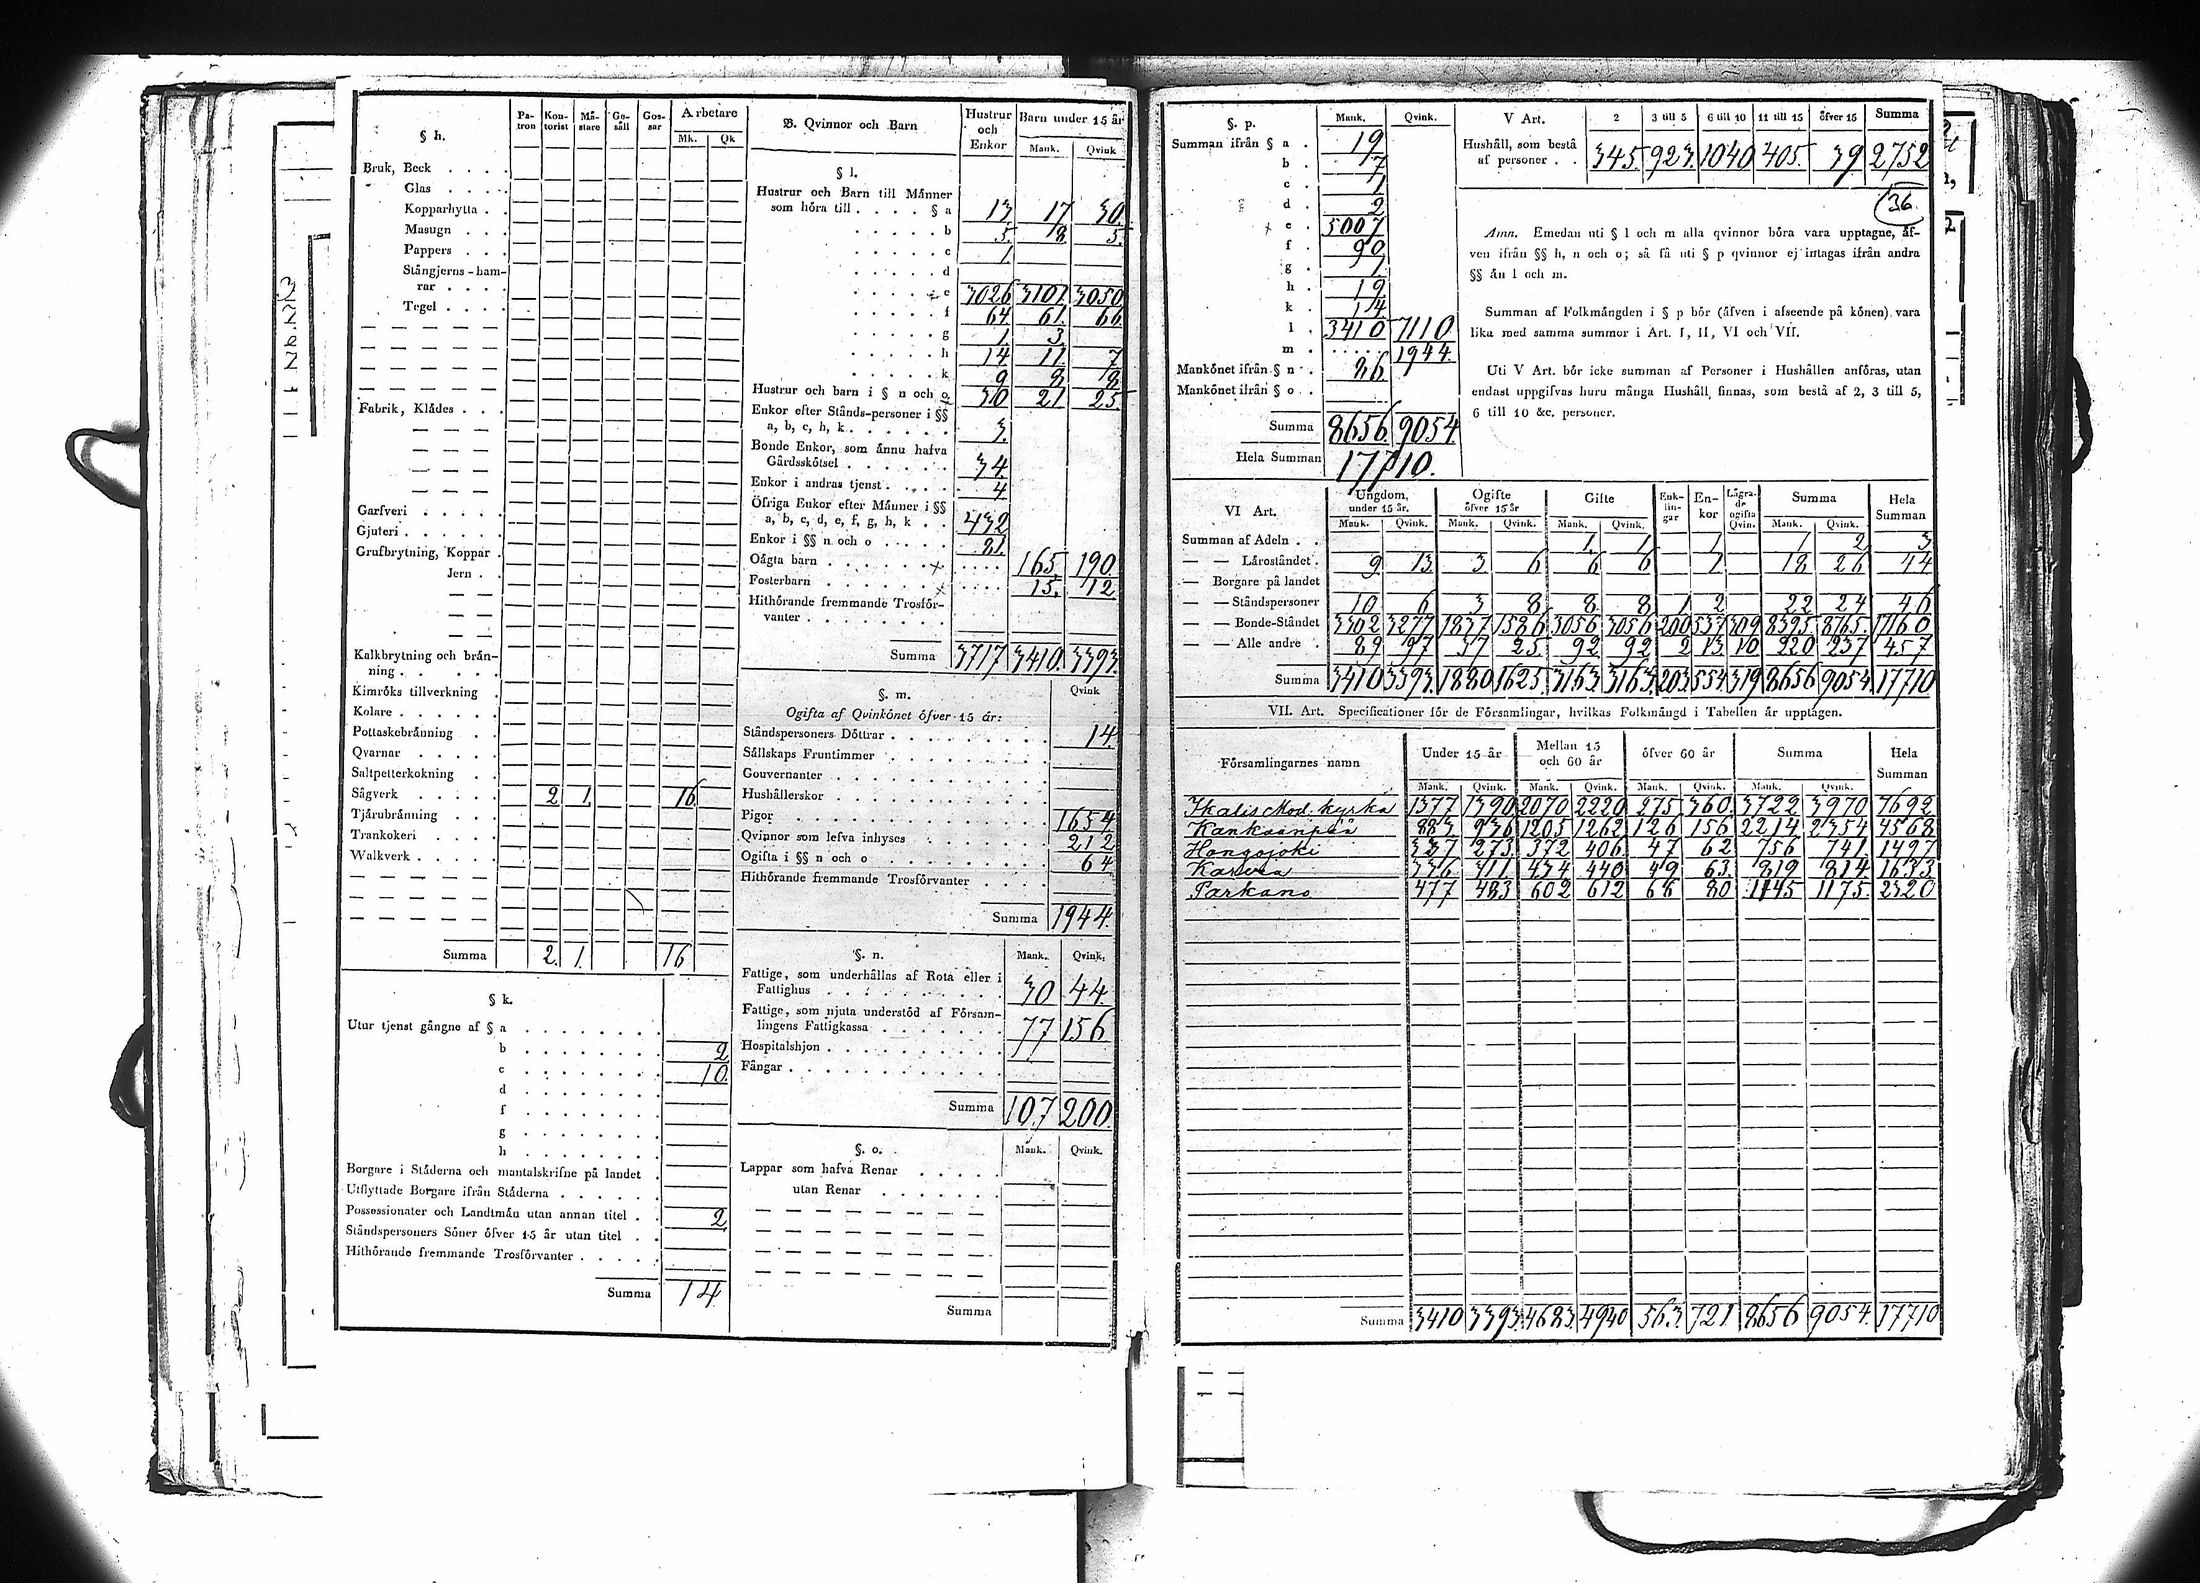 § h.
Pa-tron Kon-torist Mä-stare Ge-säll Gos-sar Arbetare
Mk. Qk
Bruk, Beck . . . .
Glas . . . .
Kopparhytta . .
Masugn . . .
Pappers . . .
Stångjerns-ham-
rar . . . .
Tegel . . . .
Fabrik, Klådes . . .
Garfveri . . . . .
Gjuteri . . . . . .
Grufbrytning, Koppar .
Jern . .
Kalkbrytning och brån-
ning . . . . .
Kimröks tillverkning .
Kolare . . . . . .
Pottaskebränning . .
Qvarnar . . . . .
Saltpetterkokning . .
Sågverk . . . . . 2 1 16
Tjärubränning . . .
Trankokeri . . . .
Walkverk . . . . .
Summa 2. 1. 16
§ k.
Utur tjenst gångne af § a . . . . . . .
b . . . . . . . 2
c . . . . . . . 10.
d . . . . . . .
f . . . . . . .
g . . . . . . .
h . . . . . . .
Borgare i Städerna och mantalskrifne på landet .
Utflyttade Borgare ifrån Städerna . . . . . .
Possessionater och Landtmän utan annan titel . . 2
Ståndspersoners Söner öfver 15 år utan titel . .
Hithörande fremmande Trosförvanter . . . . .
Summa 14
B. Qvinnor och Barn
Hustrur och Enkor Barn under 15 år
Mank. Qvink
§ l.
Hustrur och Barn till Männer
som höra till . . . . § a 13 17 30.
b 5. 18 5.
c 1
d
e 3026 3107. 3050
f 64. 61. 66
g 1. 3.
h 14 11. 7
k 9 8
Hustrur och barn i § n och o 30 21. 25.
Enkor efter Stånds-personer i §§
a, b, c, h, k . . . . . . 3.
Bonde Enkor, som ännu hafva
Gårdsskötsel . . . . . . 34.
Enkor i andras tjenst . . . . 4
Öfriga Enkor efter Männer i §§
a, b, c, d, e, f, g, h, k . . 432
Enkor i §§ n och o . . . . . 81.
Oägta barn . . . . . . . x . . . . 165. 190.
Fosterbarn . . . . . . . x . . . . 15. 12.
Hithörande fremmande Trosför-
vanter . . . . . . . .
Summa 3717 3410. 3393.
§. m.
Qvink
Ogifta af Qvinkönet öfver 15 år:
Ståndspersoners Döttrar . . . . . . . . . 14.
Sällskaps Fruntimmer . . . . . . . . .
Gouvernanter . . . . . . . . . . . .
Hushållerskor . . . . . . . . . . . .
Pigor . . . . . . . . . . . . . 1654
Qvinnor som lefva inhyses . . . . . . . 212
Ogifta i §§ n och o . . . . . . . . . 64
Hithörande fremmande Trosförvanter . . . .
Summa 1944.
§. n. Mank. Qvink.
Fattige, som underhållas af Rota eller i
Fattighus . . . . . . . . . 30 44.
Fattige, som njuta understöd af Försam-
lingens Fattigkassa . . . . . . . 77 156
Hospitalshjon . . . . . . . . . . .
Fångar . . . . . . . . . . . . .
Summa 107 200.
§. o. Mank. Qvink.
Lappar som hafva Renar . . . .
utan Renar . . . . . . .
Summa
§. p. Mank. Qvink.
Summan ifrån § a . 19
b . 7
c . 1
d . 2
e . 5007
f . 90
g . 1.
h . 19
k . 14.
l . 3410 7110
m . . . . . . 1944.
Mankönet ifrån § n . . 86
Mankönet ifrån § o . .
Summa 8656. 9054
Hela Summan 17710.
V Art. 2 3 till 5 6 till 10 11 till 15 öfver 15 Summa
Hushåll, som bestå
af personer . . 345. 923. 1040 405. 39 2752
36
Amn. Emedan uti § l och m alla qvinnor böra vara upptagne, äf-
ven ifrån §§ h, n och o; så få uti § p qvinnor ej intagas ifrån andra
§§ än l och m.
Summan af Folkmängden i § p bör (äfven i afseende på könen) vara
lika med samma summor i Art. I, II, VI och VII.
Uti V Art. bör icke summan af Personer i Hushållen anföras, utan
endast uppgifvas huru många Hushåll finnas, som bestå af 2, 3 till 5,
6 till 10 &c. personer.
VI Art. Ungdom, under 15 år. Ogifte öfver 15 år Gifte Enk-lin-gar En-kor Lägra-de ogifta Qvin. Summa Hela Summan
Mank. Qvink. Mank. Qvink. Mank. Qvink. Mank. Qvink.
Summan af Adeln . . 1. 1 1 1 2 3
— — Läroståndet . 9 13. 3 6 6 6 1 18 26 44
— Borgare på landet
— — Ståndspersoner 10 6 3 8 8. 8 1 2 22 24 46
— — Bonde-Ståndet 3302 3277 1837 1586 3056 3056 200 537 309 8395. 8765. 17160
— — Alle andre . 89 97 37 25. 92 92 2 13. 10. 220 237 457
Summa 3410 3393. 1880 1625. 3163. 3163. 203 554. 319 8656 9054 17710
VII. Art. Specificationer för de Församlingar, hvilkas Folkmängd i Tabellen är upptagen.
Församlingarnes namn Under 15 år Mellan 15 och 60 år öfver 60 år Summa Hela Summan
Mank. Qvink. Mank. Qvink. Mank. Qvink. Mank. Qvink.
Ikalis Mod. kyrka 1377 1390 2070 2220 275 360. 3722 3970 7692
Kankaanpää 883. 936 1205 1262 126 156 2214 2354 4568
Hongojoki 337 273. 372 406. 47 62 756 741. 1497
Karvia 336 311. 434 440 49 63. 819 814 1633
Parkano 477 483 602 612 66 80 1145 1175. 2320
Summa 3410 3393. 4683. 4940 563. 721 8656 9054. 17710